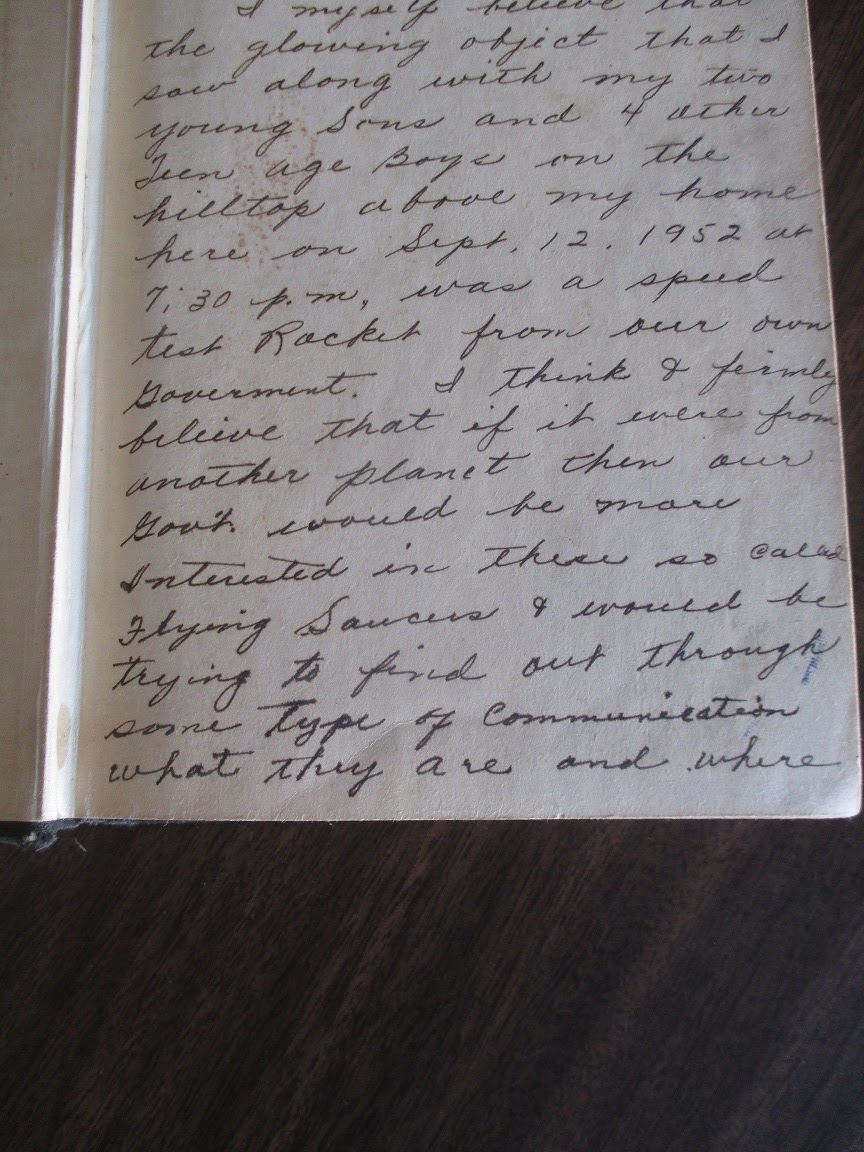 I myself believe that
the glowing object that I
saw along with my two
young Sons and 4 other
Teen age Boys on the
hilltop above my home
here on Sept. 12. 1952 at
7;30 p.m, was a speed
test Rocket from our own
Goverment. I think & firmly
beleive that if it were from
another planet then our
Gov't. would be more
Interested in these so called
Flying Saucers & would be
trying to find out through
some Type of Communication
what they are and where